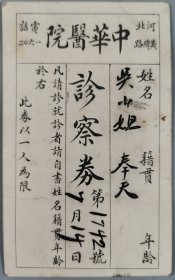 中華醫院
河北
電話
姓名 吳小姐
籍貫 奉天
年齡
診察劵 第1742號
7月14日
凡請診就診者請自書姓名籍貫年齡
於右
此劵以一人為限